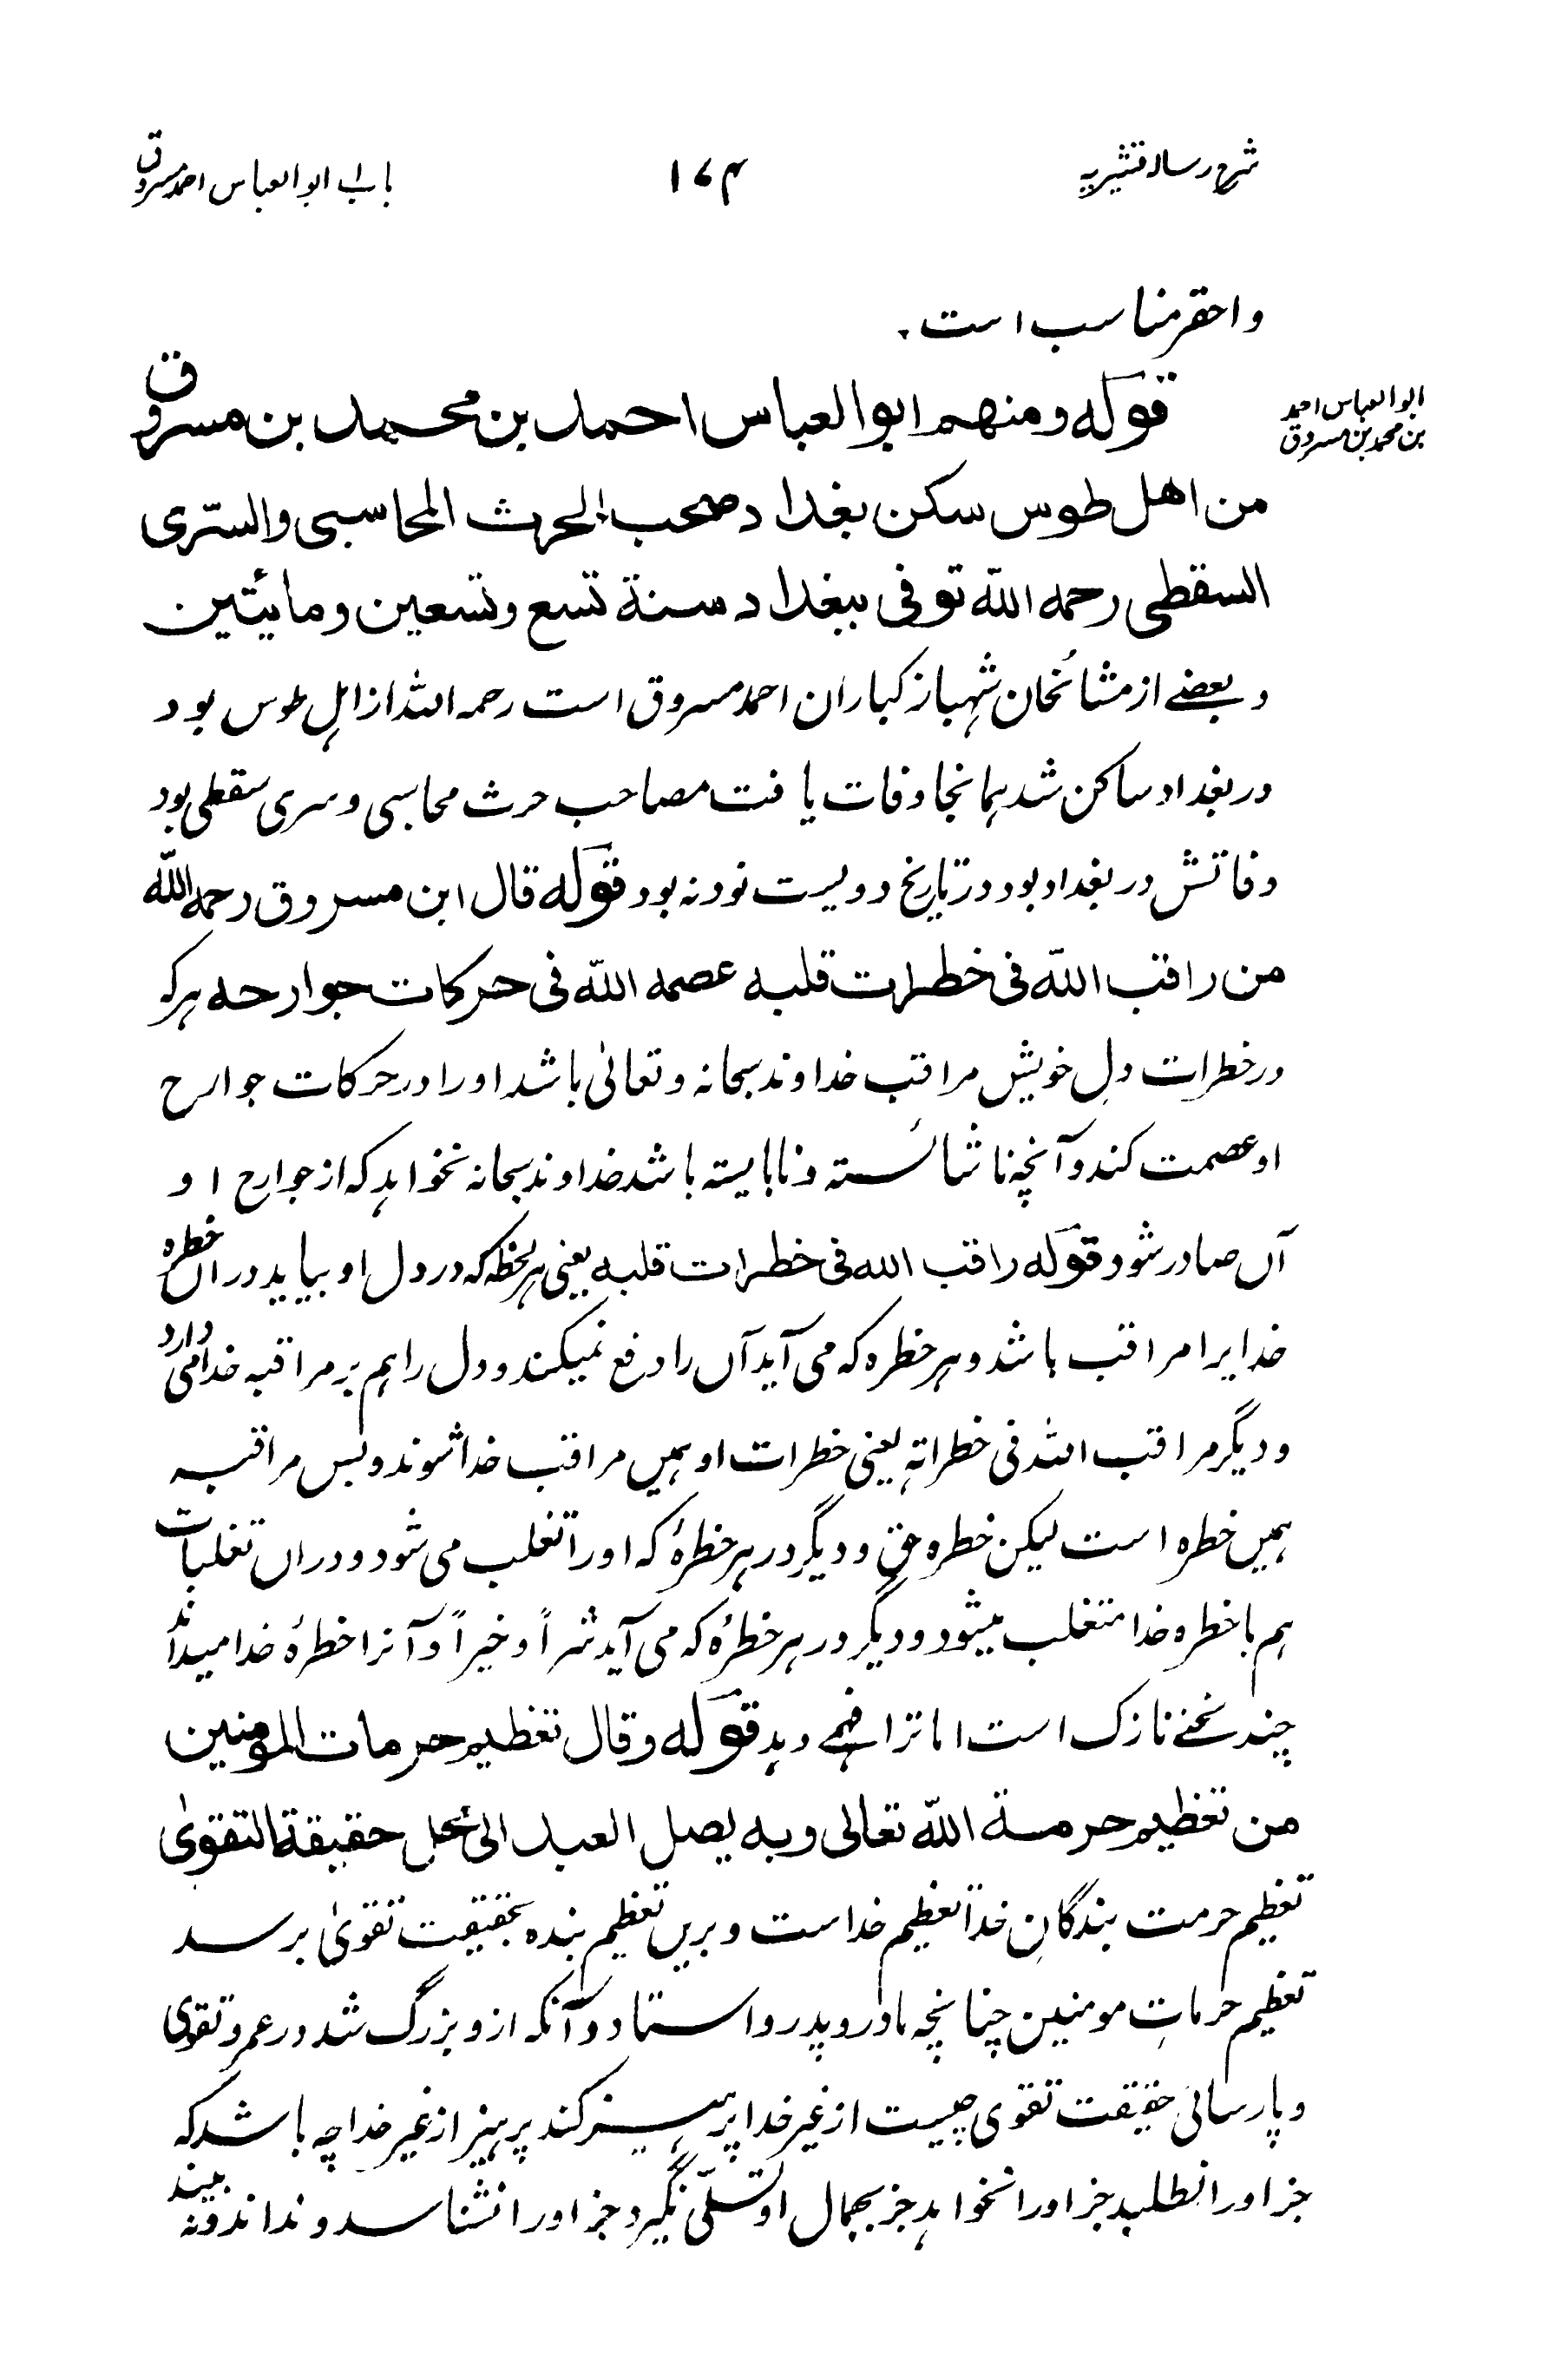 شرح رسالہ قشیریہ
۱۷۴
باب ابوالعباس احمد مسروق
و احقر مناسب است۔
ابوالعباس احمد
بن محمد بن مسروق
قوله ومنهم ابوالعباس احمد بن محمد بن مسروق
من اهل طوس سكن بغداد صحب الحرث المحاسبى والسّرى
السقطى رحمه اللّٰه توفى ببغداد سنة تسع وتسعين ومائيتين
و بعضے از مشائخان شہباز کباران احمد مسروق است رحمہ اللہ از اہل طوس بود
در بغداد ساکن شد ہمانجا وفات یافت مصاحب حرث محاسبی و سری سقطی بود
وفاتش در بغداد بود در تاریخ دویست نود نہ بود قوله قال ابن مسروق رحمه اللّٰه
من راقب اللّٰه فى خطرات قلبه عصمه اللّٰه فى حركات جوارحه ہر کہ
در خطرات دلِ خویش مراقب خداوند سبحانہ و تعالیٰ باشد او را در حرکات جوارح
او عصمت کند و آنچہ ناشائستہ و نابایستہ باشد خداوند سبحانہ نخواہد کہ از جوارح او
آں صادر شود قوله راقب الله فى خطرات قلبه یعنی ہر لحظہ کہ در دل او بیاید دراں خطرہ
خدایرا مراقب باشد و ہر خطرہ کہ می آید آں را دفع نمیکند و دل را ہم بر مراقبہ خدا می دارد
و دیگر مراقب اللہ فی خطراتہ یعنی خطرات او ہمیں مراقب خدا شوند و بس مراقبہ
ہمیں خطرہ است لیکن خطرہ حق و دیگر در ہر خطرۂ کہ او را تغلب می شود و دراں تغلبات
ہم با خطرہ خدا متغلب میشود و دیگر در ہر خطرۂ کہ می آید شراً و خیراً و آنرا خطرۂ خدا میداند
چند سخنے نازک است اما ترا فہمے دہد قوله وقال تعظيم حرمات المومنين
من تعظيم حرمة اللّٰه تعالى وبه يصل العبد الى محل حقيقة التقوىٰ
تعظیم حرمت بندگانِ خدا تعظیم خداست و بریں تعظیم بندہ بحقیقت تقویٰ برسد
تعظیم حرماتِ مومنین چنانچہ مادر و پدر و استاد و آنکہ ازو بزرگ شد در عمر و تقوی
و پارسائی حقیقت تقوی چیست از غیر خدا پرہیز کند پرہیز از غیر خدا چہ باشد کہ
جز او را نطلبد جز او را نخواہد جز بجمال او تسلّی نگیرد جز او را نشناسد و نداند و نہ بیند